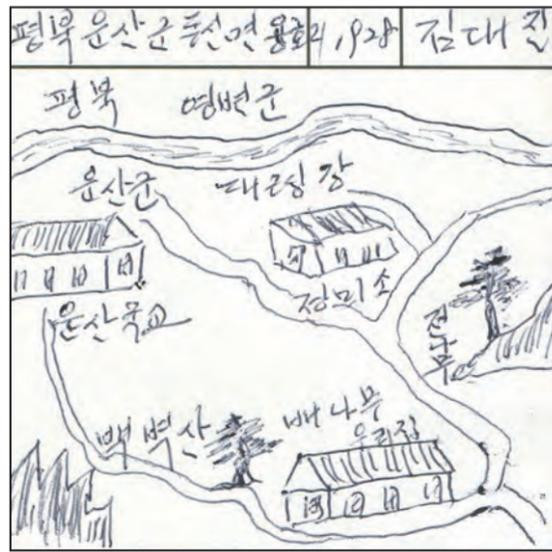 평북 운산군 동신면 용호리 1928 김대진
평북 영변군
운산군 대령장
정미소
전나무
운산국교
백벽산
배나무
우리집